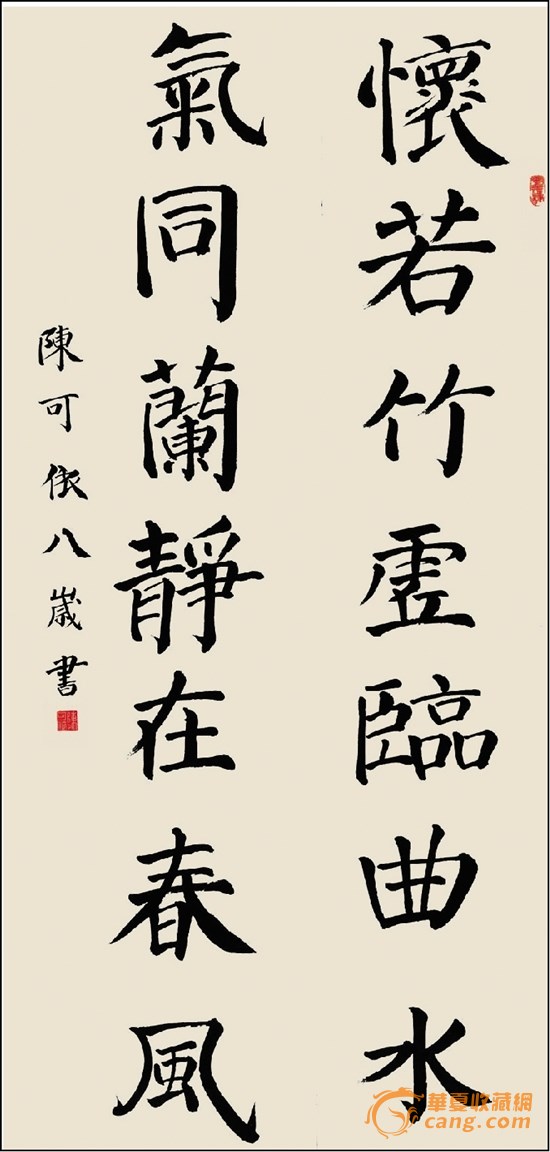 懷若竹虛臨曲水
氣同蘭靜在春風
陳可依八歲書
華夏收藏網
cang.com